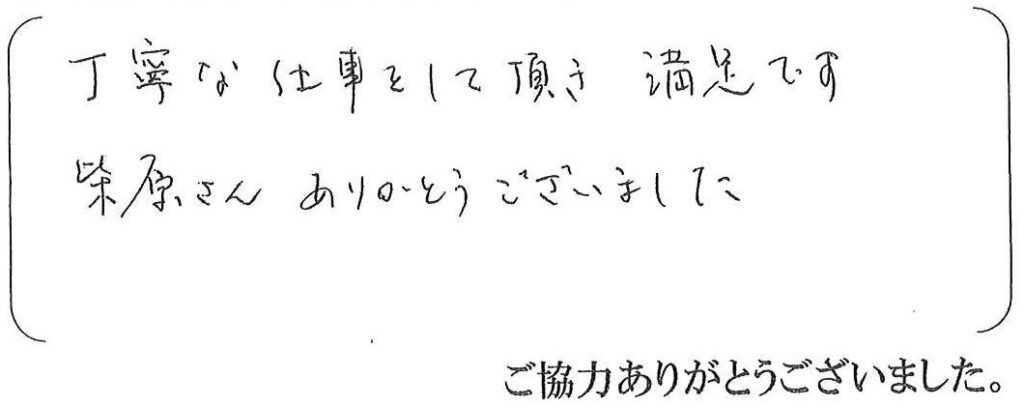 丁寧な仕事をして頂き 満足です
柴原さん ありがとうございました
ご協力ありがとうございました。